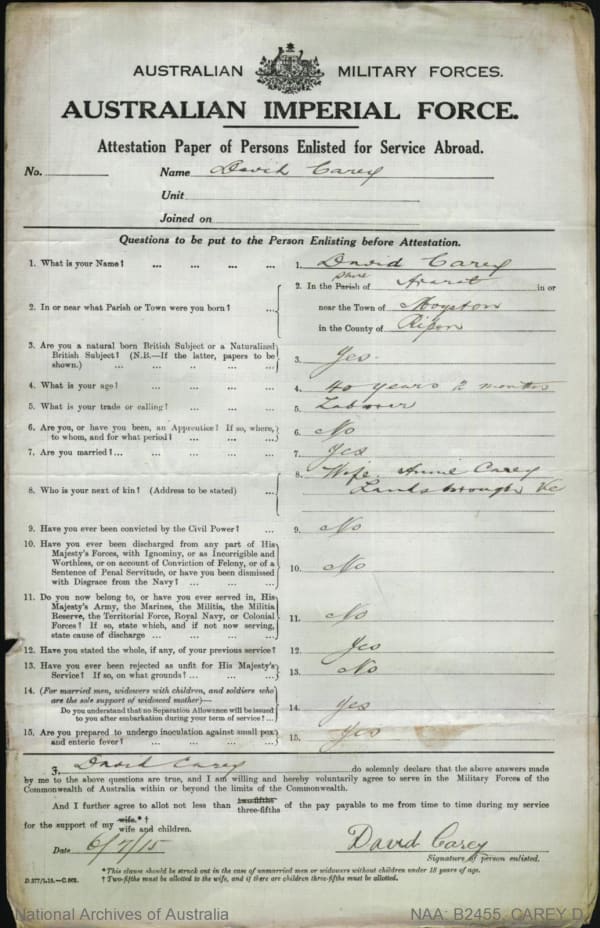 AUSTRALIAN MILITARY FORCES.
AUSTRALIAN IMPERIAL FORCE.
Attestation Paper of Persons Enlisted for Service Abroad.
No. Name David Carey
Unit
Joined on
Questions to be put to the Person Enlisting before Attestation.
1. What is your Name? ... ... ... ... 1. David Carey
2. In or near what Parish or Town were you born? ... ... 2. In the Parish Shire of Ararat in or
near the Town of Moyston
in the County of Ripon
3. Are you a natural born British Subject or a Naturalized
British Subject? (N.B.—If the latter, papers to be
shown.) ... ... ... ... ... 3. Yes.
4. What is your age? ... ... ... ... 4. 40 years 2 months
5. What is your trade or calling? ... ... ... 5. Labourer
6. Are you, or have you been, an Apprentice? If so, where,
to whom, and for what period? ... ... ... 6. No
7. Are you married?... ... ... ... ... 7. Yes
8. Who is your next of kin? (Address to be stated) ... 8. Wife Annie Carey
Landsborough Vic
9. Have you ever been convicted by the Civil Power? ... 9. No
10. Have you ever been discharged from any part of His
Majesty's Forces, with Ignominy, or as Incorrigible and
Worthless, or on account of Conviction of Felony, or of a
Sentence of Penal Servitude, or have you been dismissed
with Disgrace from the Navy? ... ... ... 10. No
11. Do you now belong to, or have you ever served in, His
Majesty's Army, the Marines, the Militia, the Militia
Reserve, the Territorial Force, Royal Navy, or Colonial
Forces? If so, state which, and if not now serving,
state cause of discharge ... ... ... ... 11. No
12. Have you stated the whole, if any, of your previous service? 12. Yes
13. Have you ever been rejected as unfit for His Majesty's
Service? If so, on what grounds? ... ... ... 13. No
14. (For married men, widowers with children, and soldiers who
are the sole support of widowed mother)—
Do you understand that no Separation Allowance will be issued
to you after embarkation during your term of service? ... 14. Yes
15. Are you prepared to undergo inoculation against small pox
and enteric fever? ... ... ... ... 15. Yes
I, David Carey do solemnly declare that the above answers made
by me to the above questions are true, and I am willing and hereby voluntarily agree to serve in the Military Forces of the
Commonwealth of Australia within or beyond the limits of the Commonwealth.
And I further agree to allot not less than two-fifths three-fifths of the pay payable to me from time to time during my service
for the support of my wife.*† wife and children.
Date 6/7/15 David Carey
Signature of person enlisted.
*This clause should be struck out in the case of unmarried men or widowers without children under 18 years of age.
† Two-fifths must be allotted to the wife, and if there are children three-fifths must be allotted.
National Archives of Australia NAA: B2455, CAREY D